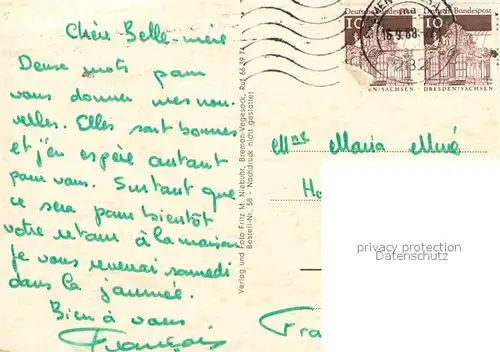 Chère Belle-mère
Deux mots pour
vous donner mes nou-
velles. Elles sont bonnes
et j'en espère autant
pour vous. Surtout que
ce sera pour bientôt
votre retour à la maison
Je vous reverrai samedi
dans la journée.
Bien à vous
François
Verlag und Foto Fritz M. Niebuhr, Bremen-Vegesack, Ruf 66 39 74
Bestell-Nr. 58 - Nachdruck nicht gestattet
Deutsche Bundespost
Deutsche Bundespost
10
10
16.9.68
282
EN/SACHSEN
DRESDEN/SACHSEN
Mme Maria
Ho
privacy protection
Datenschutz
Fra